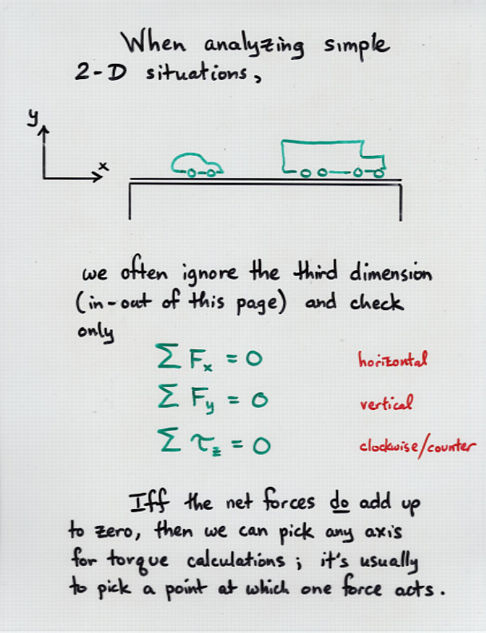 When analyzing simple
2-D situations,
y
x
we often ignore the third dimension
(in-out of this page) and check
only
Σ Fx = 0 horizontal
Σ Fy = 0 vertical
Σ τz = 0 clockwise/counter
Iff the net forces do add up
to zero, then we can pick any axis
for torque calculations; it's usually
to pick a point at which one force acts.